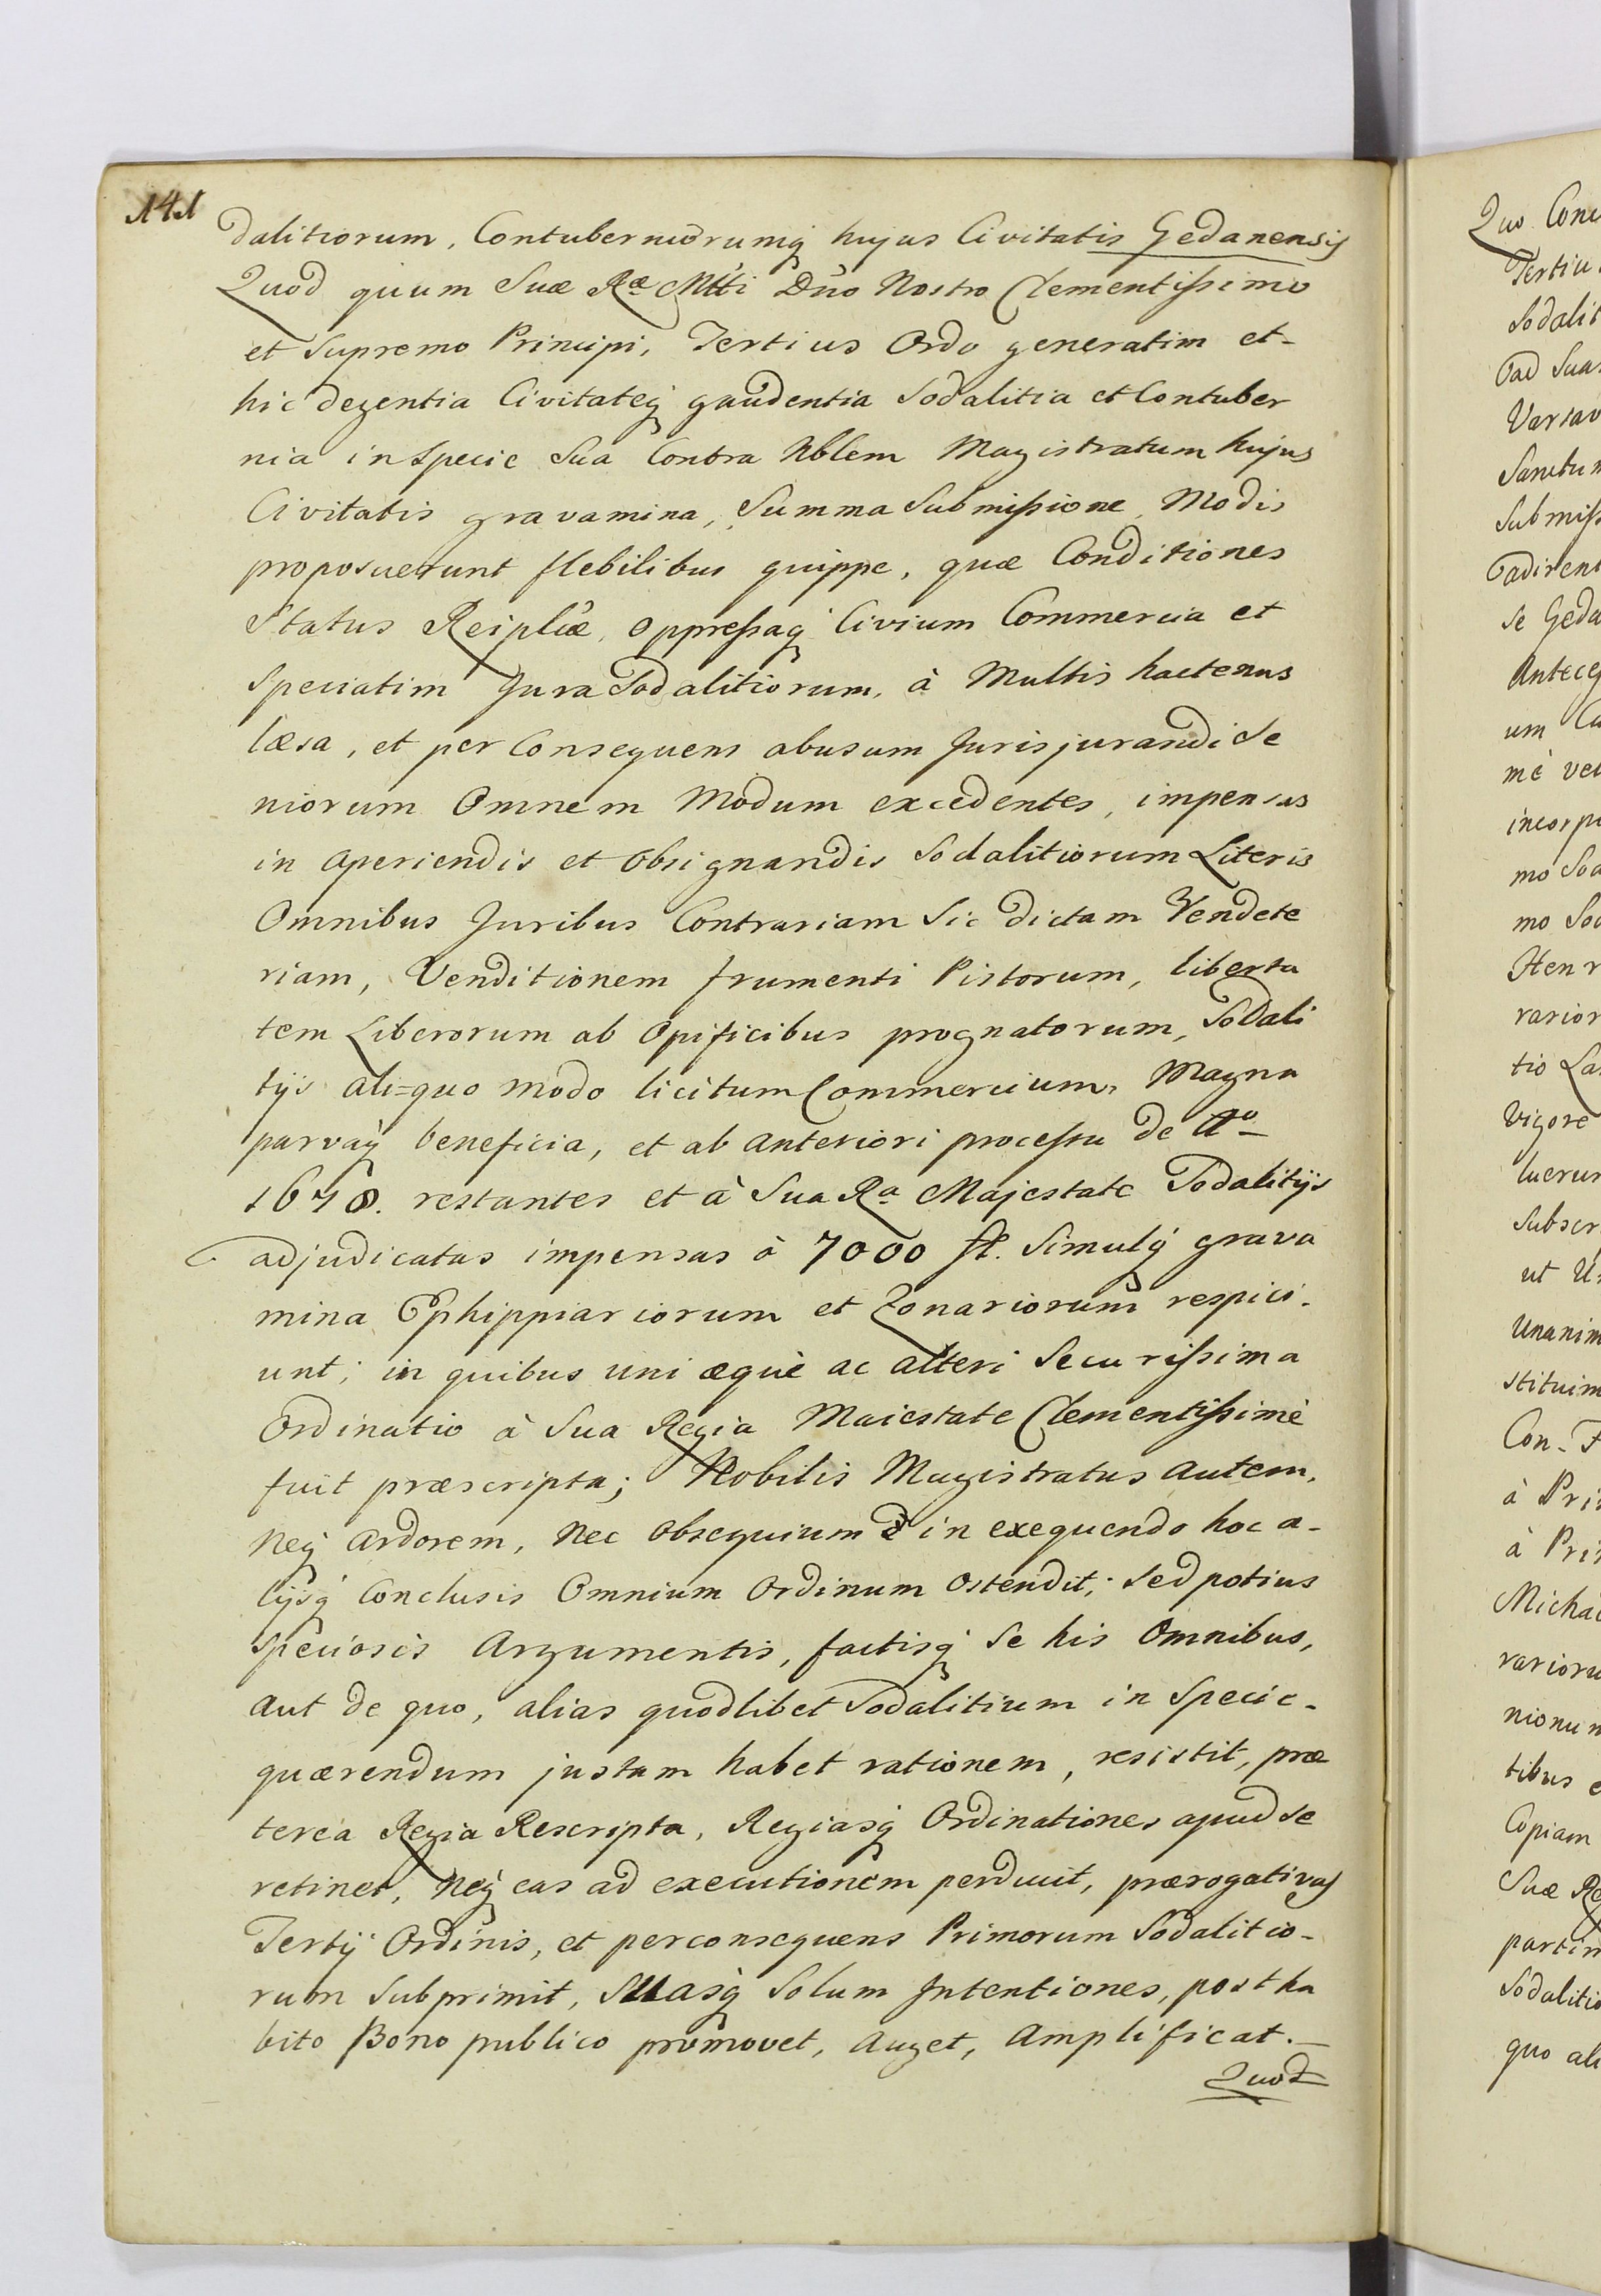 141
dalitiorum, Contuberniorumq hujus Civitatis Gedanensis
Quod quum Suæ Ræ Mtti Dno Nostro Clementissimo
et Supremo Principi, Tertius Ordo generatim et-
hic degentia Civitateq gaudentia Sodalitia et Contuber
nia in Specie Sua Contra Nblem Magistratum hujus
Civitatis gravamina, Summa Submissione, Modis
proposuerunt flebilibus quippe, quæ Conditiones
Status Reiplicæ, oppressaq Civium Commercia et
Speciatim Jura Sodalitiorum, à Multis hactenus
læsa, et per Consequens abusum Jurisjurandi Se
niorum Omnem Modum excedentes, impensas
in aperiendis et Obsignandis Sodalitiorum Literis
Omnibus Juribus Contrariam Sic dictam Vendete
riam, Venditionem frumenti Pistorum, liberta
tem Liberorum ab Opificibus prognatorum, Sodali
tijs ali=quo modo licitum Commercium, Magna
parvaq beneficia, et ab anteriori processu de Ao
1678. restantes et à Sua Ra Majestate Sodalitijs
adjudicatas impensas à 7000 fl. Simulq grava
mina Ephippiariorum et Zonariorum respici-
unt; in quibus uni æquè ac alteri Securissima
Ordinatio à Sua Regia Maiestate Clementissimè
fuit præscripta; Nobilis Magistratus autem,
Neq ardorem, Nec Obsequium in exequendo hoc a-
lijsq Conclusis Omnium Ordinum Ostendit; Sed potius
Speciosis Argumentis, factisq Se his Omnibus,
aut de quo, alias quodlibet Sodalitium in Specie-
quærendum justam habet rationem, resistit, præ
terea Regia Rescripta, Regiasq Ordinationes apud se
retinet, Neq eas ad executionem perducit, prærogativas
Tertij Ordinis, et perconsequens Primorum Sodalitio-
rum Subprimit, Suasq Solum Intentiones, postha
bito Bono publico promovet, Auget, Amplificat.-
Quod
Quo
Tertiu
Sodalit
ad Sua
Varsav
Sanctum
Submiss
adirent
Se Geda
Anteceq
um
mè
incorp
mo
mo
Henr
varior
tio
Vigore
luerun
Subscr
ut
Unanim
stituim
Con-
à Pri
à Pri
Micha
rarioru
nionum
tibus
Copiam
Suæ Re
partim
Sodalitio
quo